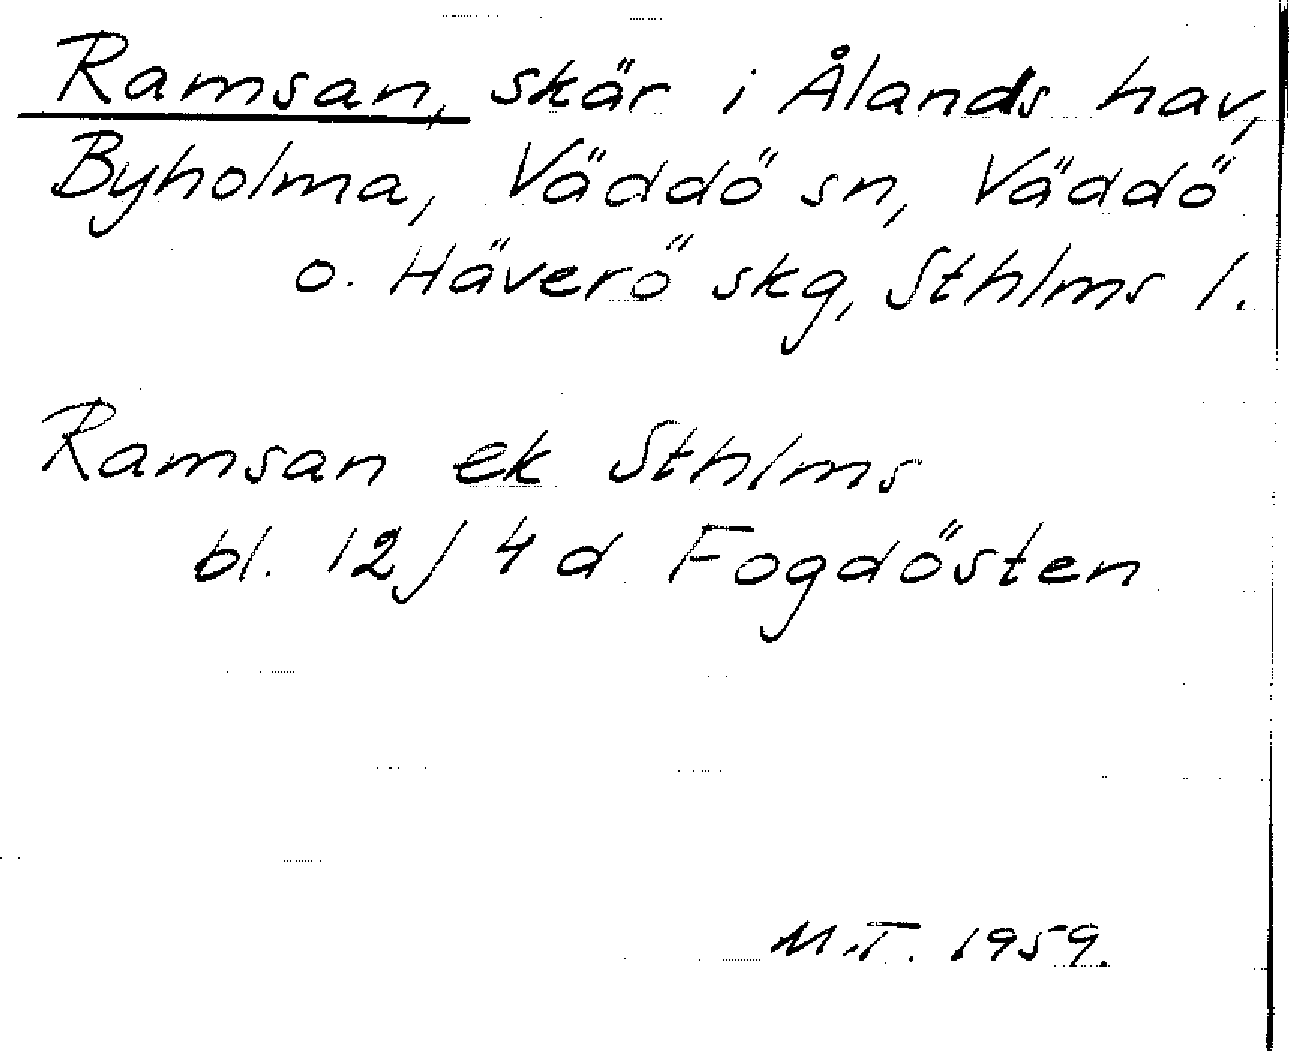 Ramsan, skär i Ålands hav,
Byholma, Väddö sn, Väddö
o. Häverö skg, Sthlms l.
Ramsan ek Sthlms
bl. 12J 4d Fogdösten
M.T. 1959.